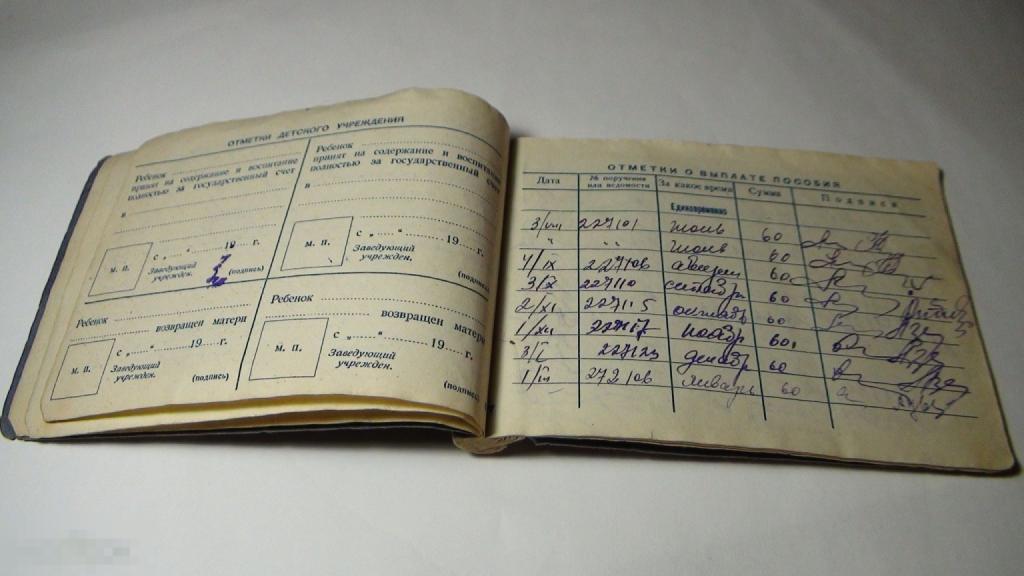 ОТМЕТКИ ДЕТСКОГО УЧРЕЖДЕНИЯ
Ребенок
принят на содержание и воспитание
полностью за государственный счет
в
с „ “ 19 г.
м. п.
Заведующий
учрежден.
(подпись)
Ребенок
принят на содержание и воспитание
полностью за государственный счет
в
с „ “ 19 г.
м. п.
Заведующий
учрежден.
(подпись)
Ребенок
возвращен матери
с „ “ 19 г.
м. п.
Заведующий
учрежден.
(подпись)
Ребенок
возвращен матери
с „ “ 19 г.
м. п.
Заведующий
учрежден.
(подпись)
ОТМЕТКИ О ВЫПЛАТЕ ПОСОБИЯ
Дата № поручения или ведомости За какое время Сумма Подписи
Единовременно
3/VIII 227101 июнь 60
" " июль 60
4/IX 227106 август 60
3/X 227110 сентябр 60
2/XI 227115 октябр 60
1/XII ноябр 60
3/I 227123 декабр 60
1/III 272106 январь 60